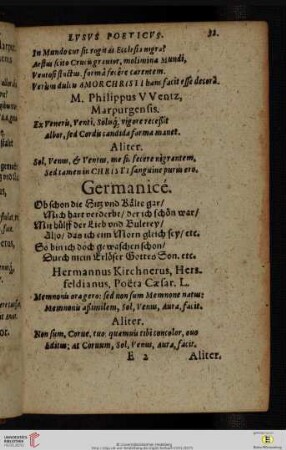 LVSVS POETICVS. 32.
In Mundo cur sit rogitas Ecclesia nigra?
Aestus scito Crucis grauter, molimina Mundi,
Ventosq́ flictus, formâ fecêre carentem.
Verùm dulcis AMOR CHRISTI hanc facit esse decorâ.
M. Philippus VVentz,
Marpurgensis.
Ex Veneris, Venti, Solisq́, vigore recessit
Albor, sed Cordis candida forma manet.
Aliter.
Sol, Venus, & Ventus, me si fecere nigrantem,
Sed tamen in CHRISTI sanguine purus ero.
Germanicé.
Ob schon die Hitz und Kälte gar/
Mich hart verderbt/ der ich schön war/
Mit hülff der Lieb und Buleren/
Also/ das ich eim Morn gleich sey/ etc.
So bin ich doch gewaschen schon/
Durch mein Erlöser Gottes Son. etc.
Hermannus Kirchnerus, Hers-
feldianus, Poëta Cæsar. L.
Memnonis ora gero: sed non sum Memnone natus:
Memnonis assimilem, Sol, Venus, Aura, facit.
Aliter.
Non sum, Corue, tuo, quamuis tibi concolor, ouo
Editus: at Coruum, Sol, Venus, Aura, facit.
E 2 Aliter.
UNIVERSITÄTS-
BIBLIOTHEK
HEIDELBERG
© Universitätsbibliothek Heidelberg